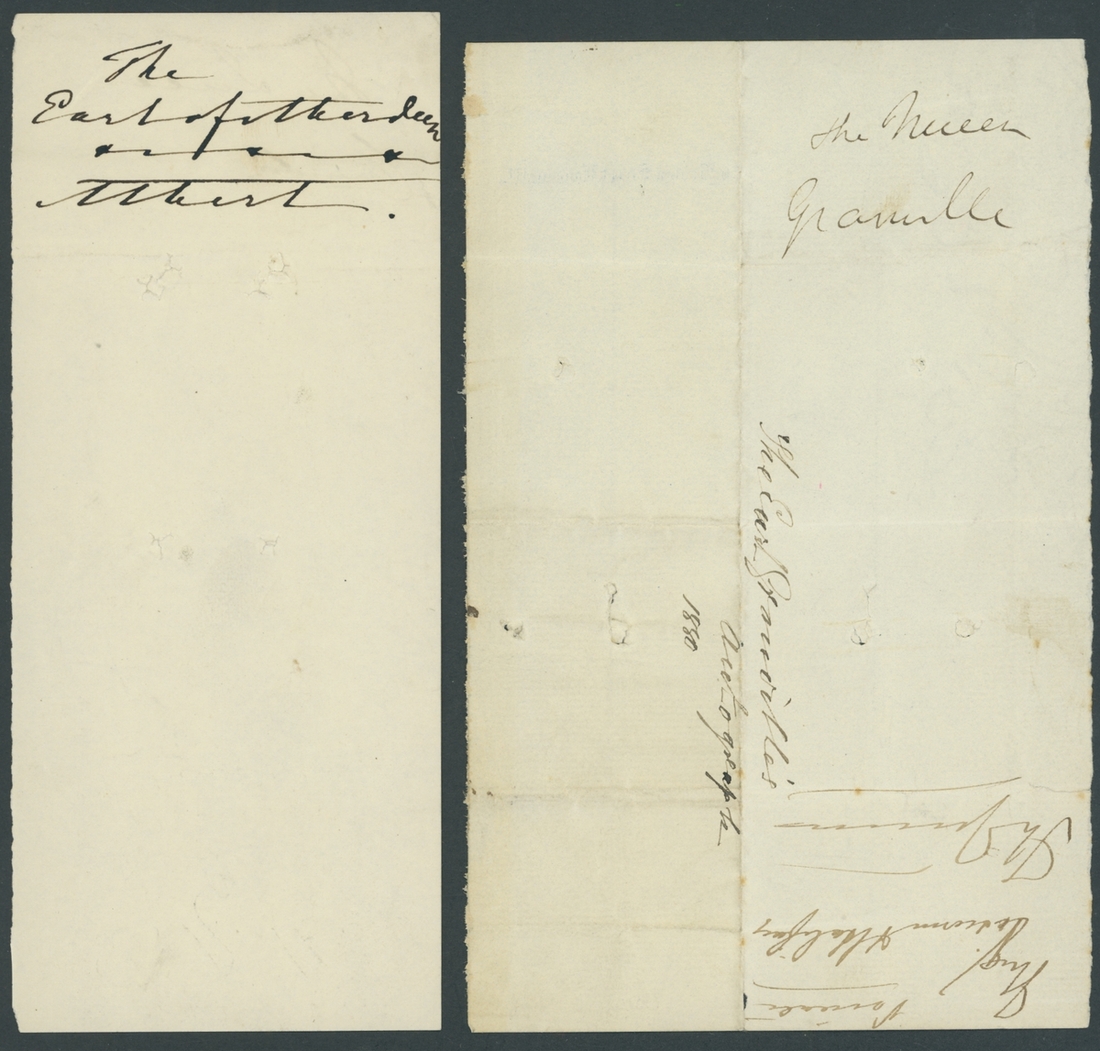 The
Earl of Aberdeen
Albert.
The Queen
Granville
The Earl Granville's
Autograph
1880